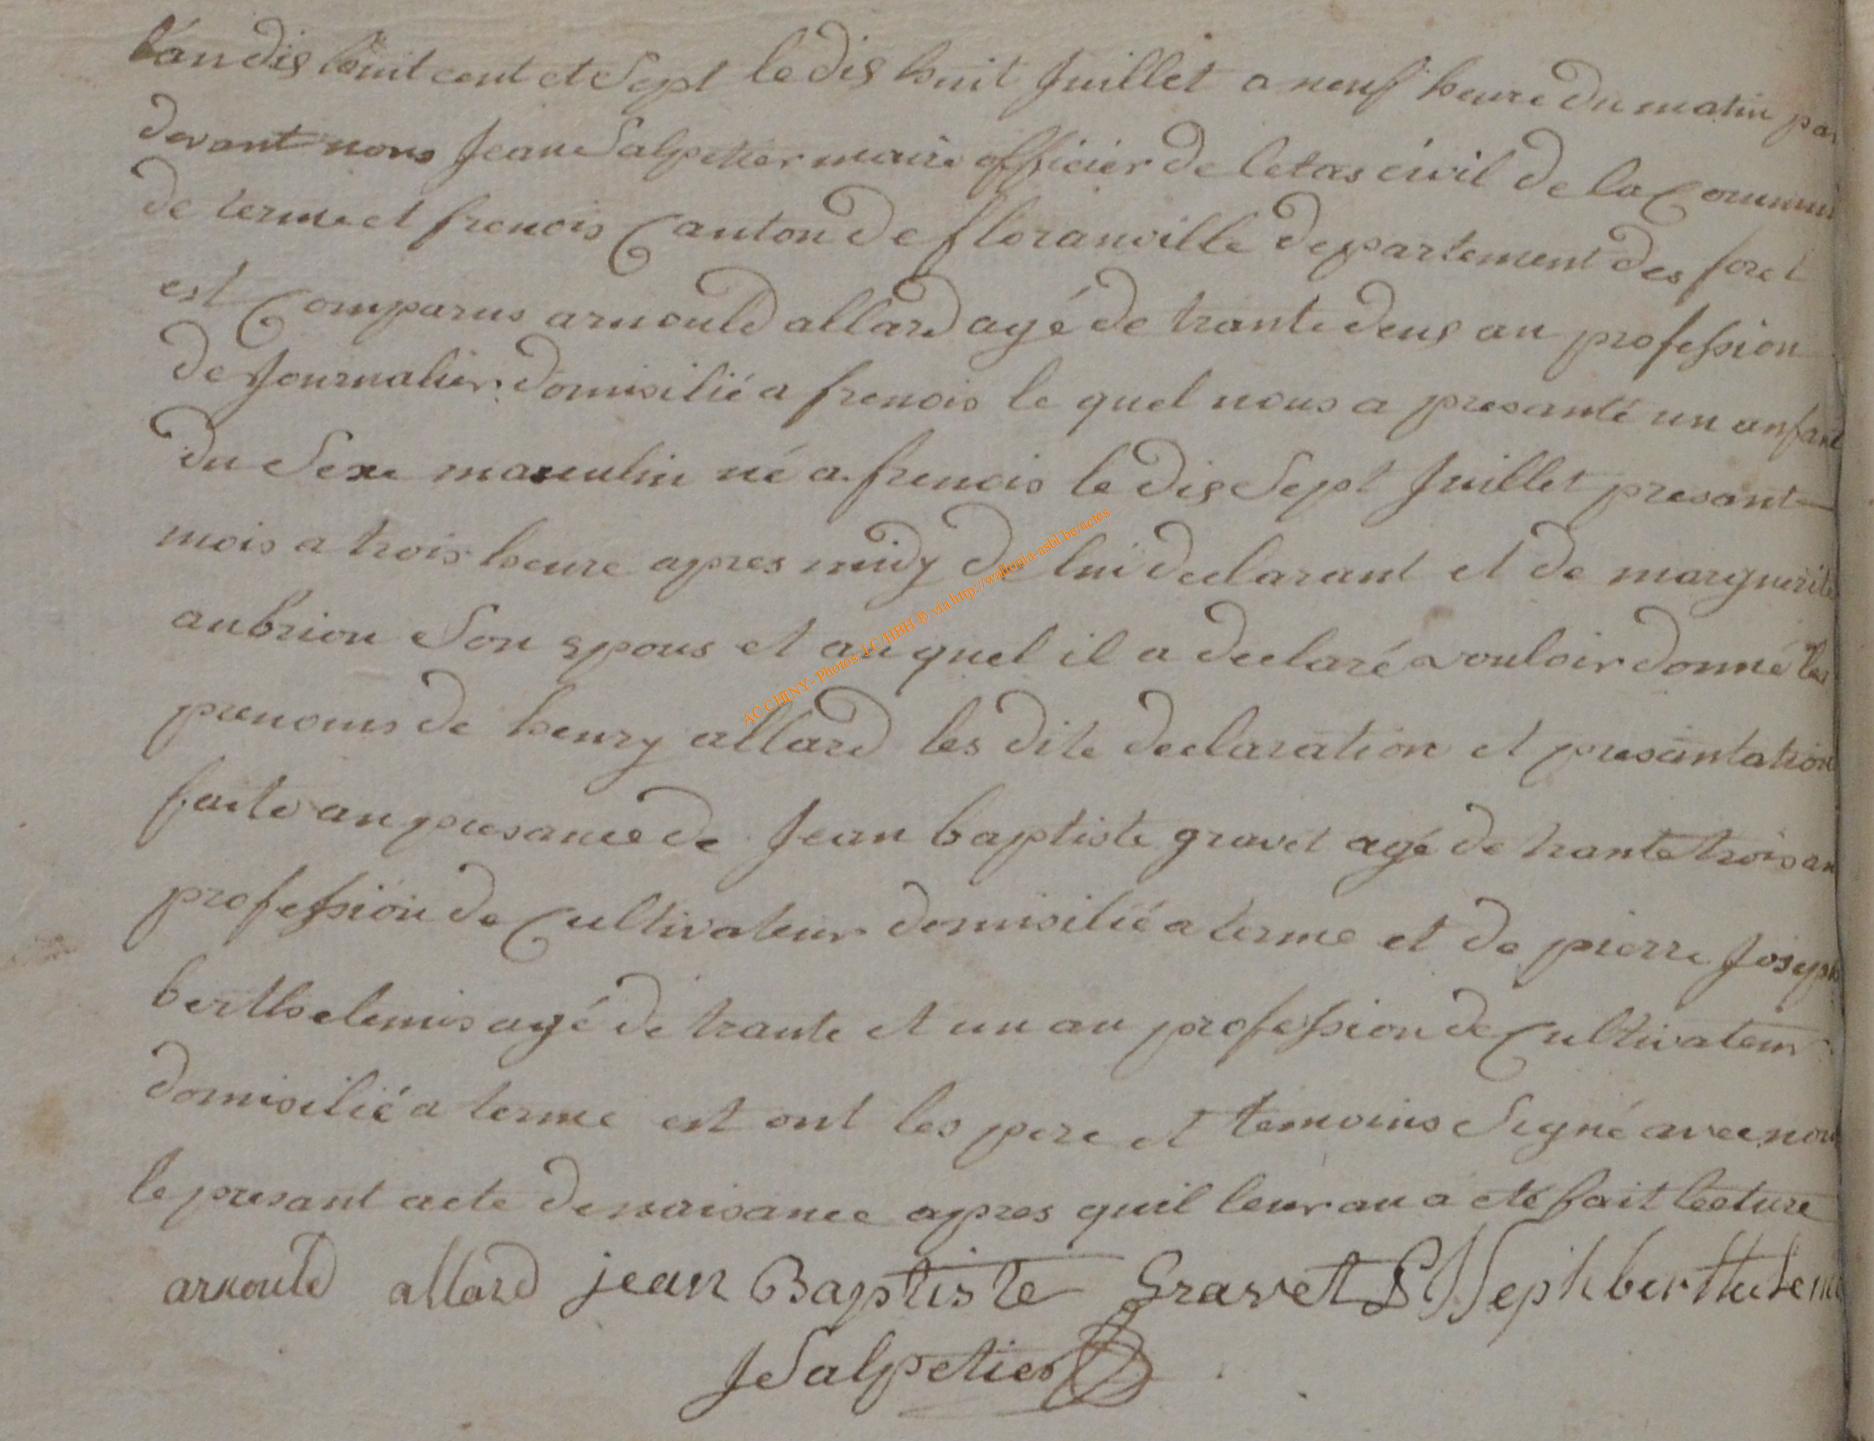 l'an dis huit cent et Sept le dis huit Juillet a neuf heure du matin par
devant nous Jean Salpetier maire officier de letas civil de la Commun
de terme et frenois Canton de floranville departement des foret
est Comparus arnould allard agé de trante deus an profession
de Journalier domisilié a frenois le quel nous a presanté un anfant
du Sexe masculin né a frenois le dis Sept Juillet presant
mois a trois heure apres midy de lui declarant et de marguerite
aubrion Son epous et au quel il a declaré vouloir donné les
prenoms de henry allard les dite declaration et presantation
faite an presance de Jean baptiste gravet agé de trante trois an
profession de Cultivateur domisilié a terme et de pierre Joseph
berthelemis agé de trante et un an profession de Cultivateur
domisilié a terme est ont les pere et temoins Segné avec nous
le presant acte de naisance apres quil leur an a eté fait lecture
arnould allard jean Baptiste Gravet P JSeph berthelemi
JSalpetier
AC CHINY - Photos J-C HBH ® via http://wallonia-asbl.be/actes